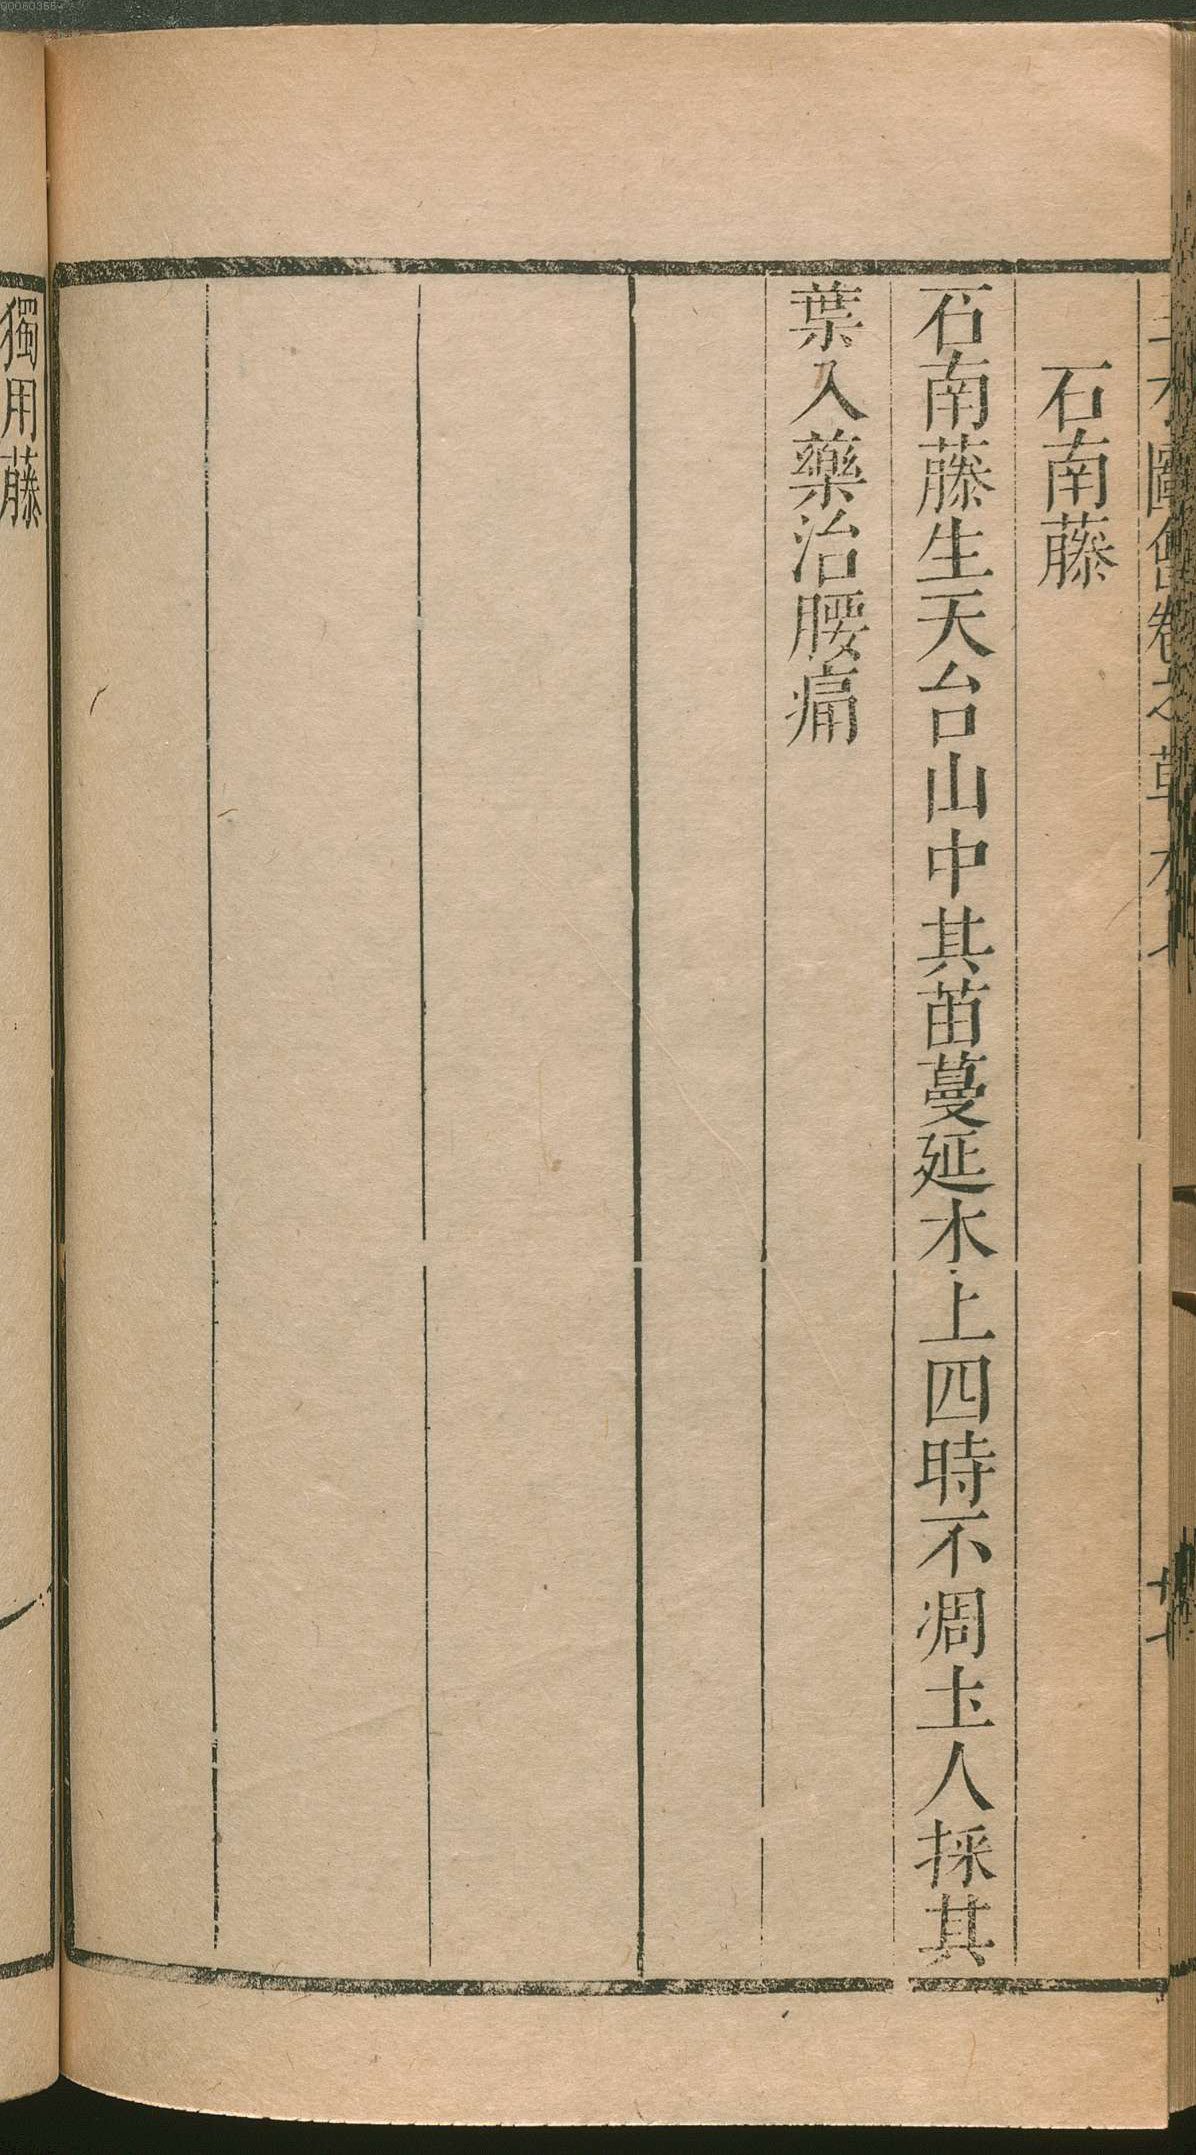 石南藤
石南藤生天台山中其苗蔓延木上四時不凋土人採其
葉入藥治腰痛
獨用藤